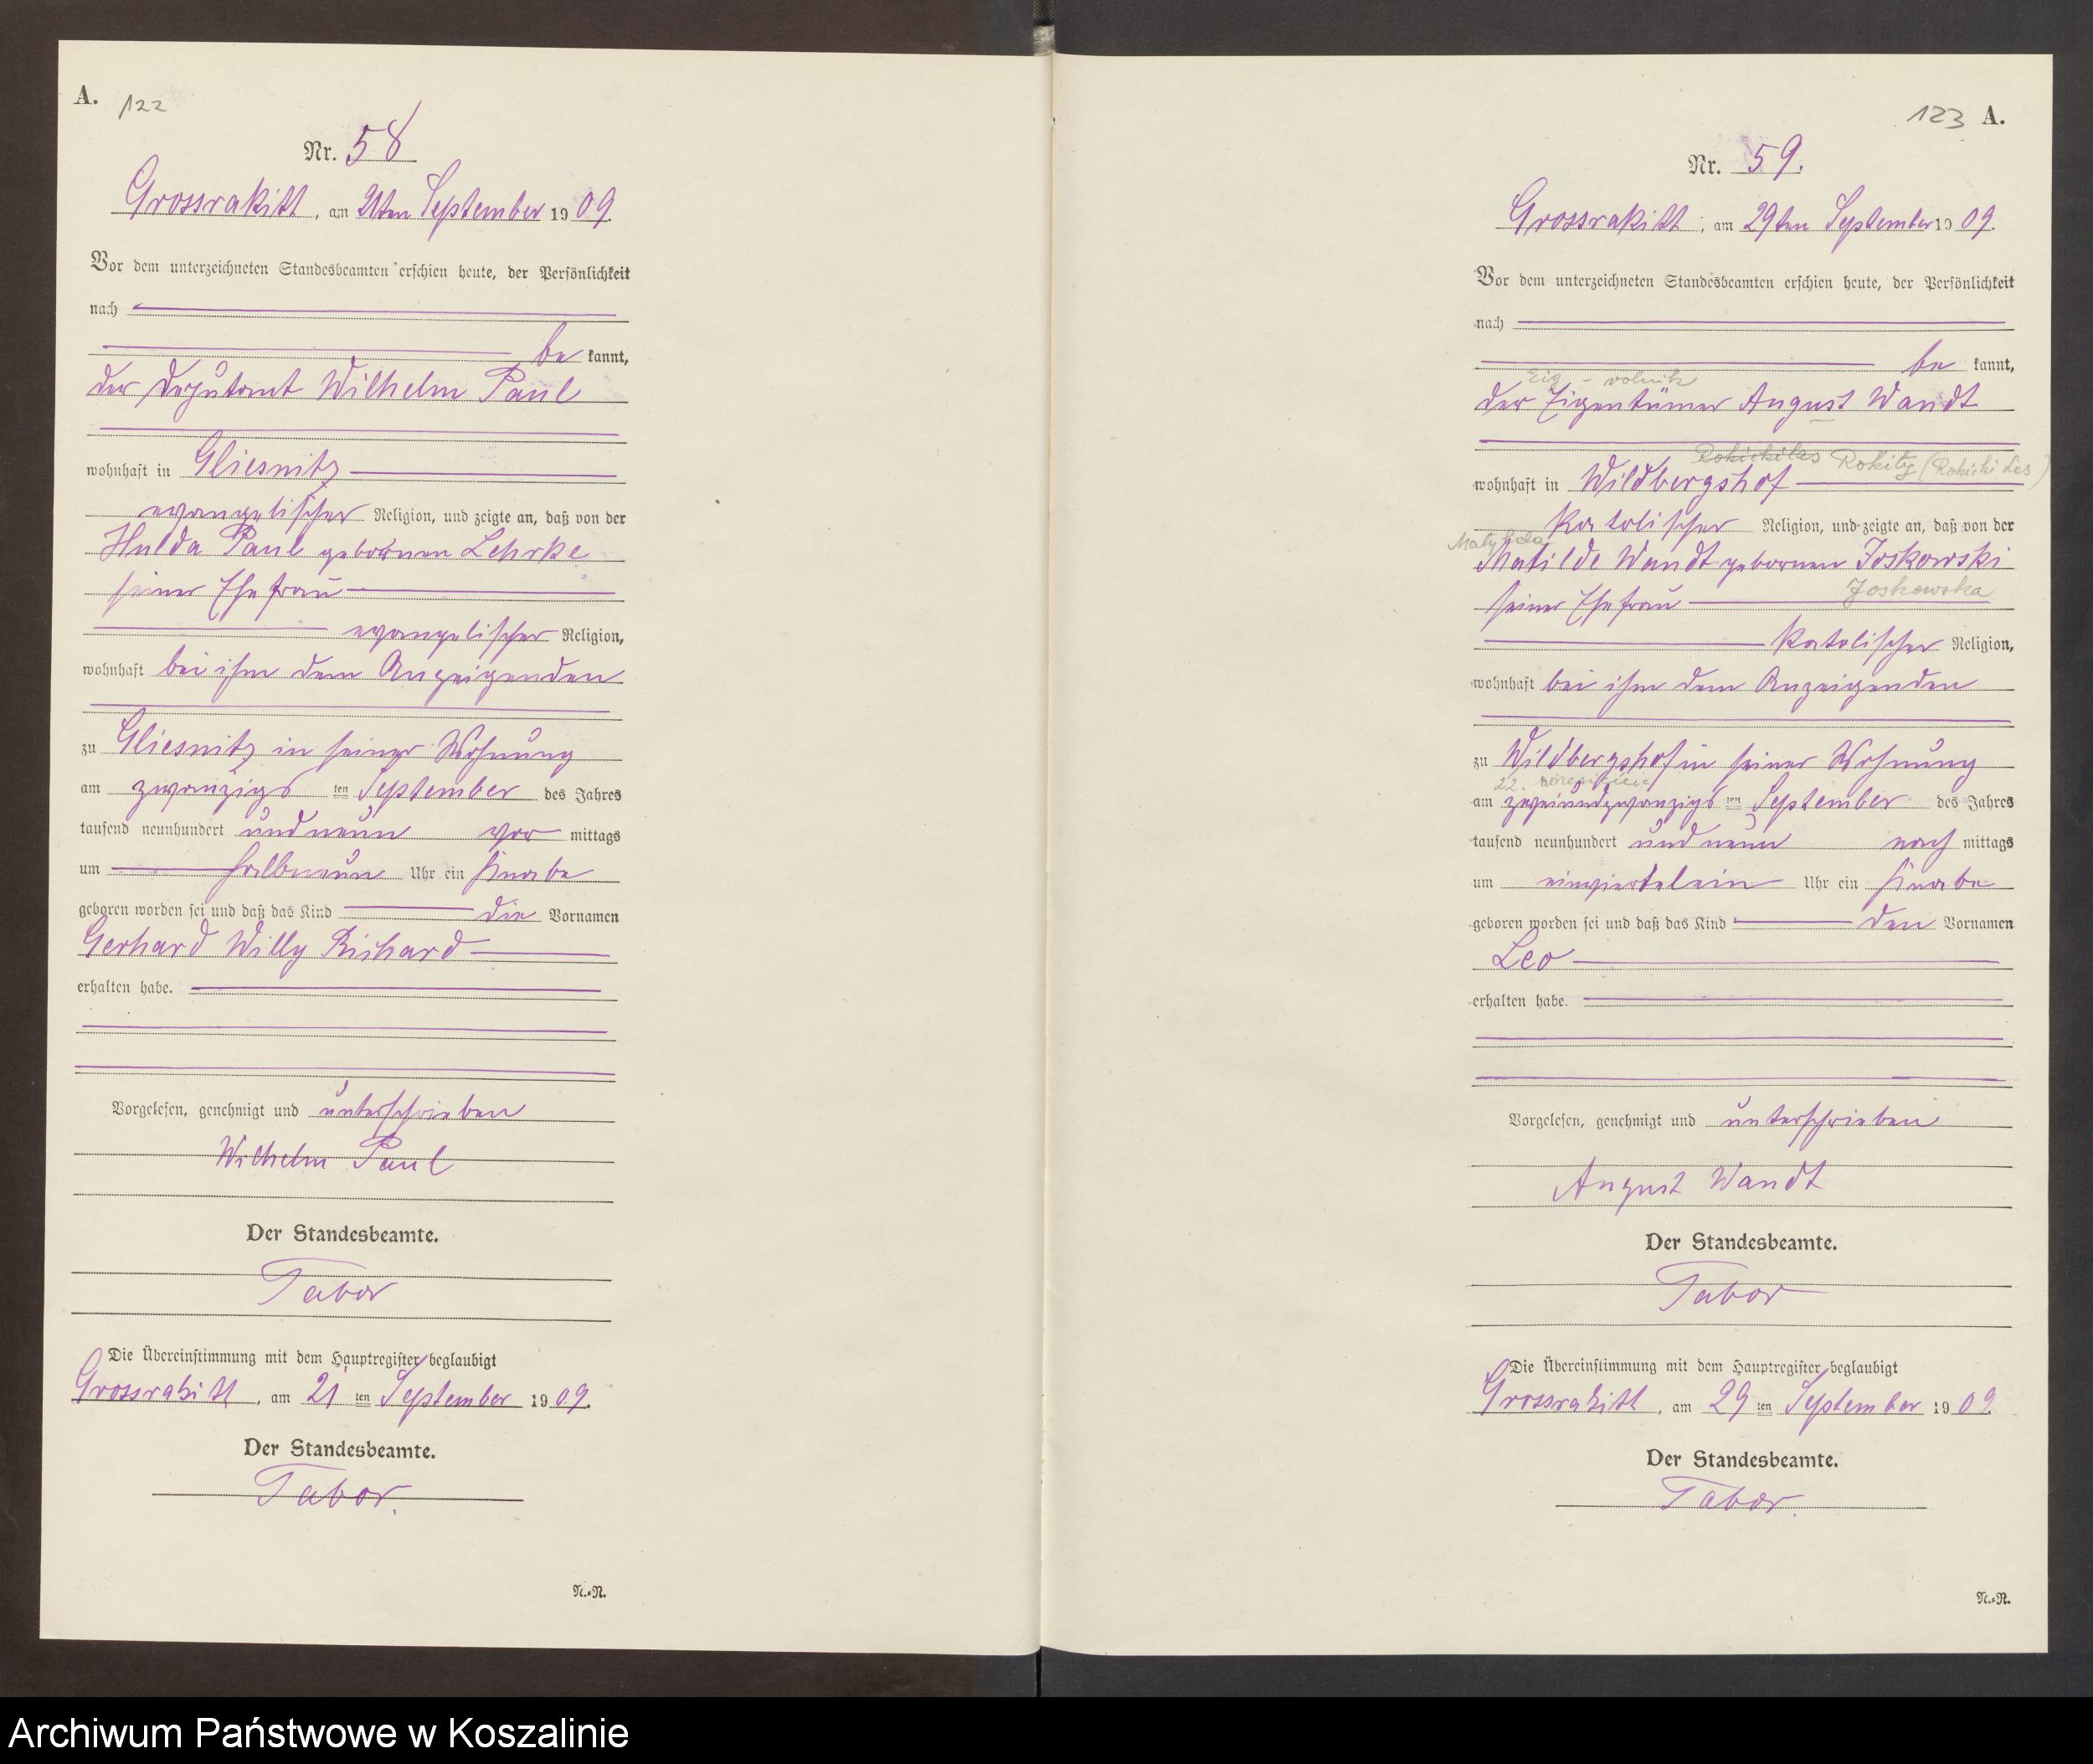 A. 122
Nr. 58
Grossrakitt, am 21ten September 1909.
Vor dem unterzeichneten Standesbeamten erschien heute, der Persönlichkeit
nach
be kannt,
der Deputant Wilhelm Paul
wohnhaft in Gliesnitz
evangelischer Religion, und zeigte an, daß von der
Hulda Paul gebornen Lehrke
seiner Ehefrau
evangelischer Religion,
wohnhaft bei ihm dem Anzeigenden
zu Gliesnitz in seiner Wohnung
am zwanzigs ten September des Jahres
tausend neunhundert und neun vor mittags
um halbneun Uhr ein Knabe
geboren worden sei und daß das Kind die Vornamen
Gerhard Willy Richard
erhalten habe.
Vorgelesen, genehmigt und unterschrieben
Wilhelm Paul
Der Standesbeamte.
Tabor
Die Übereinstimmung mit dem Hauptregister beglaubigt
Grossrakitt, am 21 ten September 1909.
Der Standesbeamte.
Tabor.
N.=N.
123 A.
Nr. 59.
Grossrakitt, am 29ten September 1909.
Vor dem unterzeichneten Standesbeamten erschien heute, der Persönlichkeit
nach
be kannt,
der Eigentümer August Wandt
Rokickilas Rokity (Rokicki Las)
wohnhaft in Wildbergshof
Katolischer Religion, und zeigte an, daß von der
Matylda
Matilde Wandt gebornen Joskowski
Joskowska
seiner Ehefrau
Katolischer Religion,
wohnhaft bei ihm dem Anzeigenden
zu Wildbergshof in seiner Wohnung
22. września
am zweiundzwanzigs ten September des Jahres
tausend neunhundert und neun nach mittags
um einviertelein Uhr ein Knabe
geboren worden sei und daß das Kind den Vornamen
Leo
erhalten habe.
Vorgelesen, genehmigt und unterschrieben
August Wandt
Der Standesbeamte.
Tabor
Die Übereinstimmung mit dem Hauptregister beglaubigt
Grossrakitt, am 29 ten September 1909.
Der Standesbeamte.
Tabor.
N.=N.
Archiwum Państwowe w Koszalinie